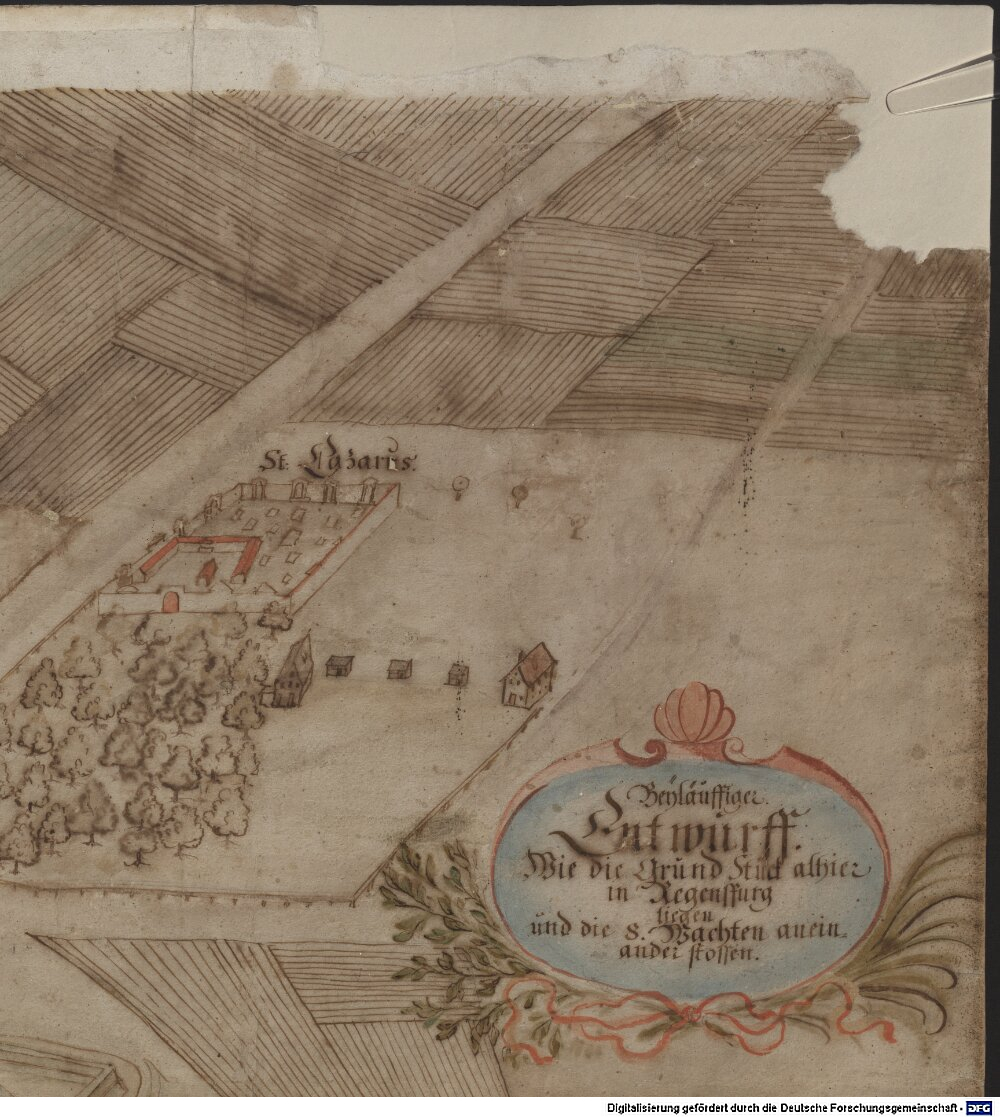 St: Lazarus.
Beÿläuffiger
Entwurff.
Wie die Grund Stuck alhier
in Regenspurg
liegen
und die 8. Wachten anein
ander stossen.
Digitalisierung gefördert durch die Deutsche Forschungsgemeinschaft - DFG